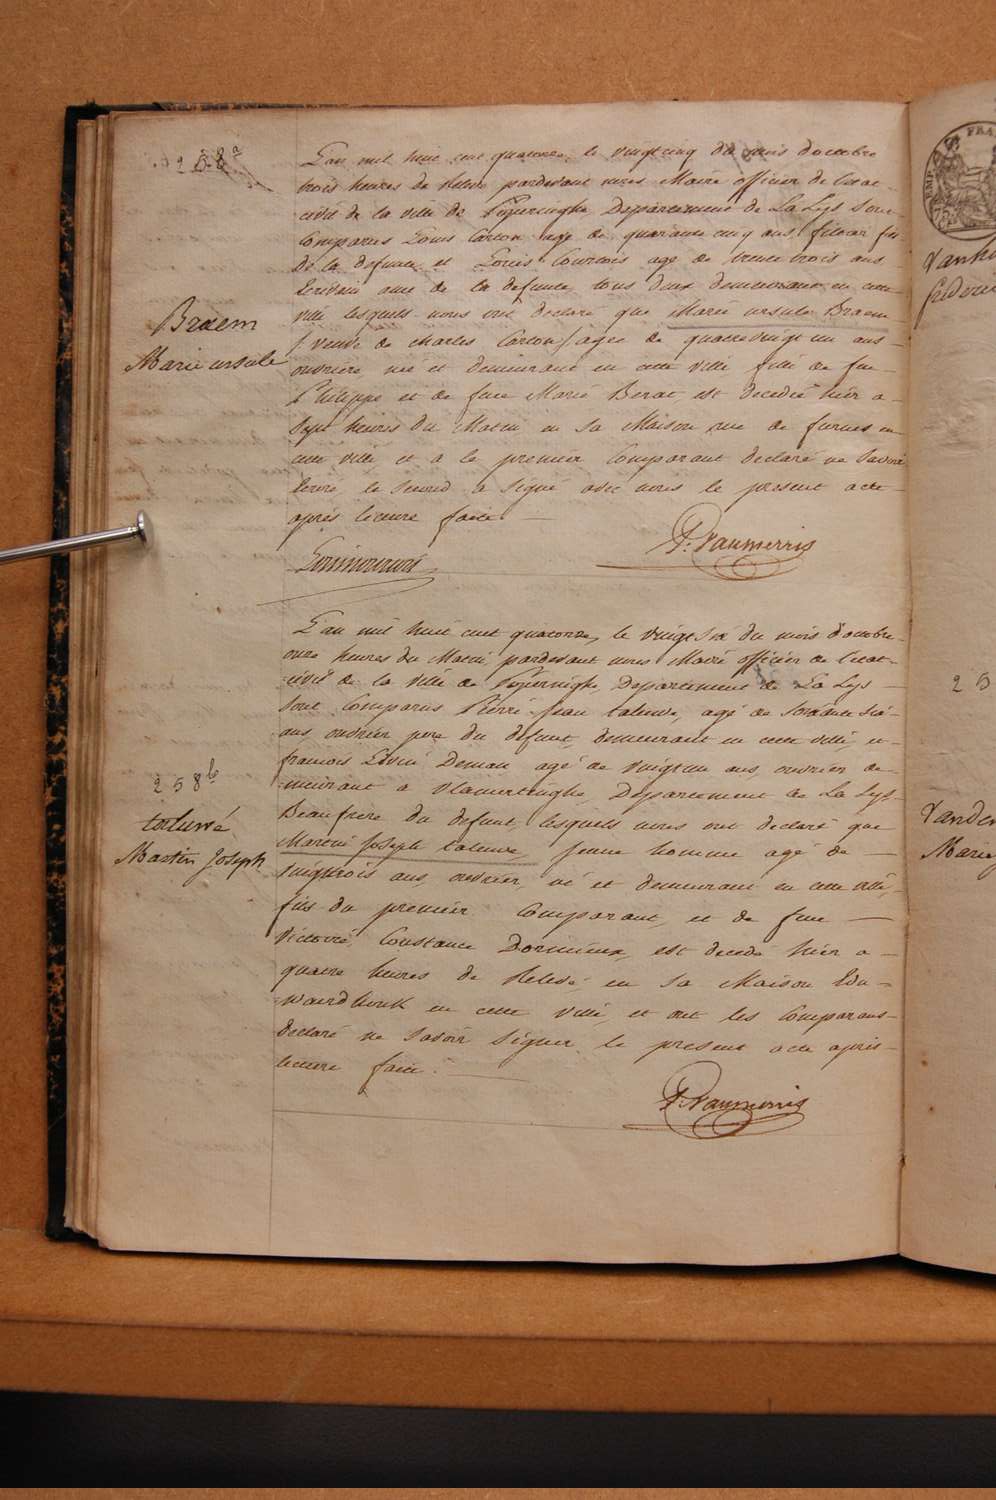 258a
L'an mil huit cent quatorze, le vingtcinq du mois d'octobre
trois heures de Relevé pardevant nous Maire officier de l'etat-
civil de la ville de Poperinghe Departement de La Lys sont
Comparus Louis Carton agé de quarante cinq ans fileur fils
de la defunte et Louis Courtois agé de trente trois ans
Ecrivain ami de la defunte, tous deux demeurant en cette
ville lesquels nous ont declaré que Marie ursule Braem
Braem
Marie ursule
(veuve de charles Carton) agée de quatrevingt un ans
ouvrière, née et demeurant en cette ville fille de feu
Philippe et de feue Marie Berat est decedée hier a
Sept heures du Matin en sa Maison rue de furnes en
cette ville et a le premier Comparant declaré ne Savoir
Ecrire le second a Signé avec nous le present acte
après lecture faite
P. Vanmerris
Louis Courtois
L'an mil huit cent quatorze, le vingt six du mois d'octobre
onze heures du Matin, pardevant nous Maire officier de l'etat-
civil de la ville de Poperinghe, Departement de La Lys
Sont Comparus Pierre Jean taleuwe, agé de Soixante six
ans ouvrier pere du defunt, demeurant en cette ville, et
francois Deman agé de vingt un ans, ouvrier de-
meurant a vlamertinghe, Departement de La Lys,
258b
Beaufrere du defunt, lesquels nous ont declaré que
Martin Joseph taleuwe, jeune homme agé de
Martin Joseph
vingttrois ans, ouvrier, né et demeurant en cette ville,
fils du premier Comparant, et de feue
Victoire Constance est decedé hier a
quatre heures de Relevé en sa Maison Edu-
waerdhouk en cette ville, et ont les Comparans
declaré ne savoir Signer le present acte après
lecture faite.
P. Vanmerris
FRA
25
Marie